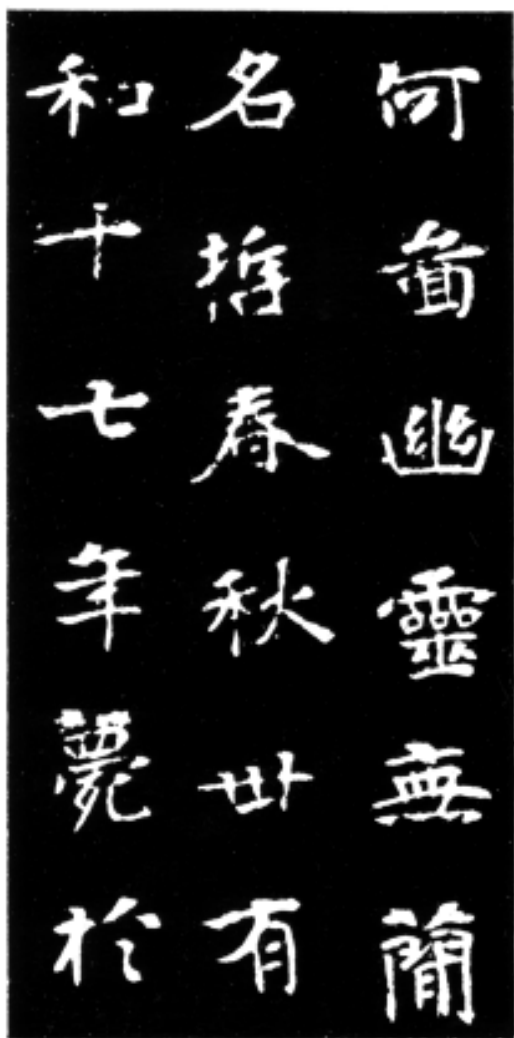 何啚幽靈無簡
名哲春秋卌有
和十七年薨於